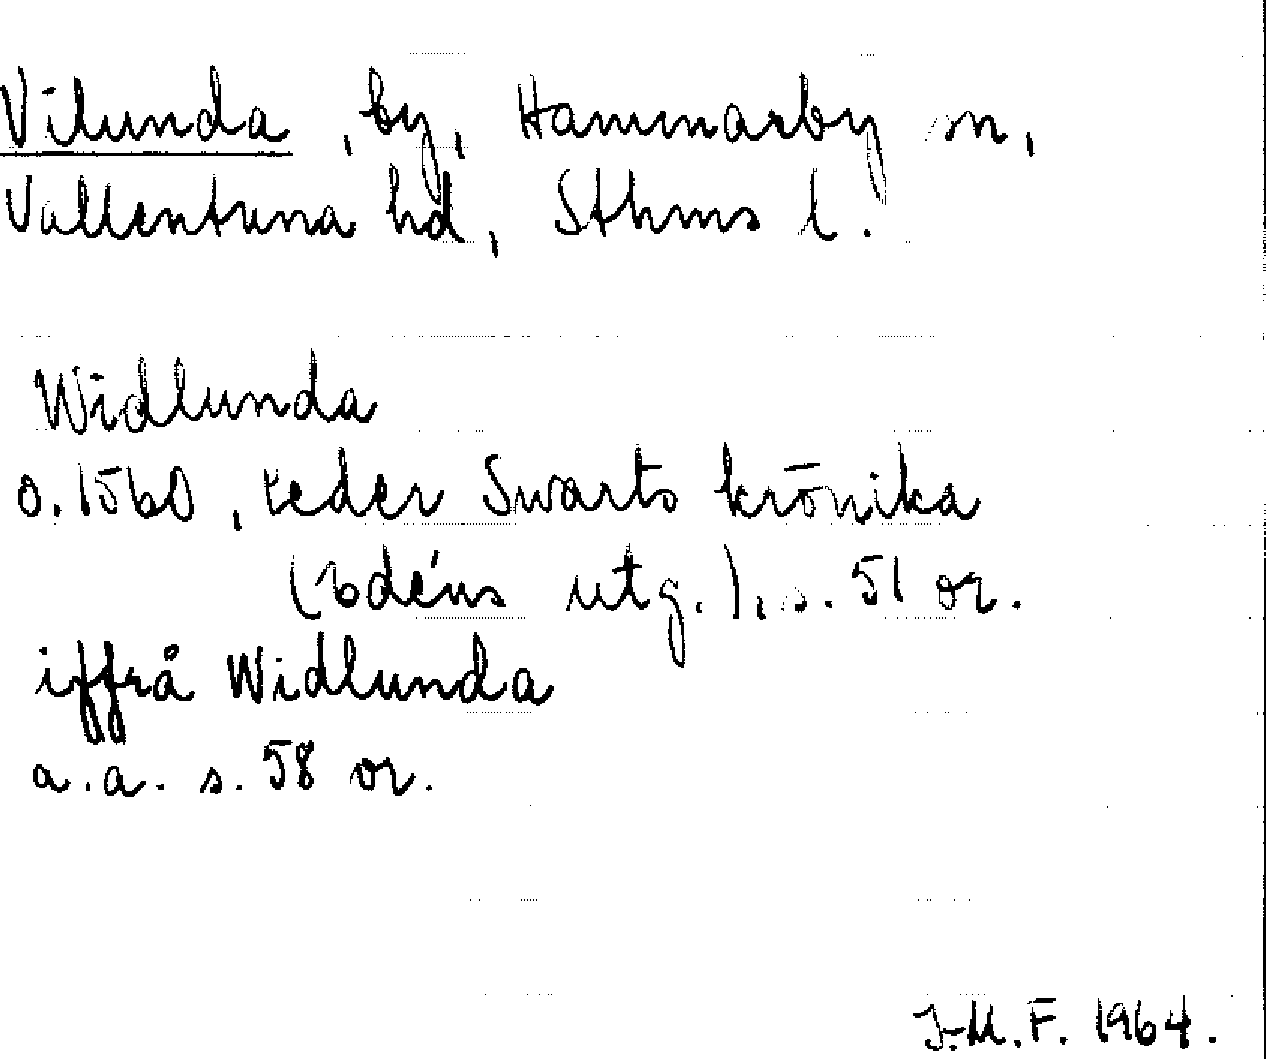 Vilunda, by, Hammarby sn,
Vallentuna hd, Sthms l.
Widlunda
o. 1560, Peder Swarts krönika
(Edéns utg.), s. 51 or.
iffrå Widlunda
a.a. s. 58 or.
J-M.F. 1964.